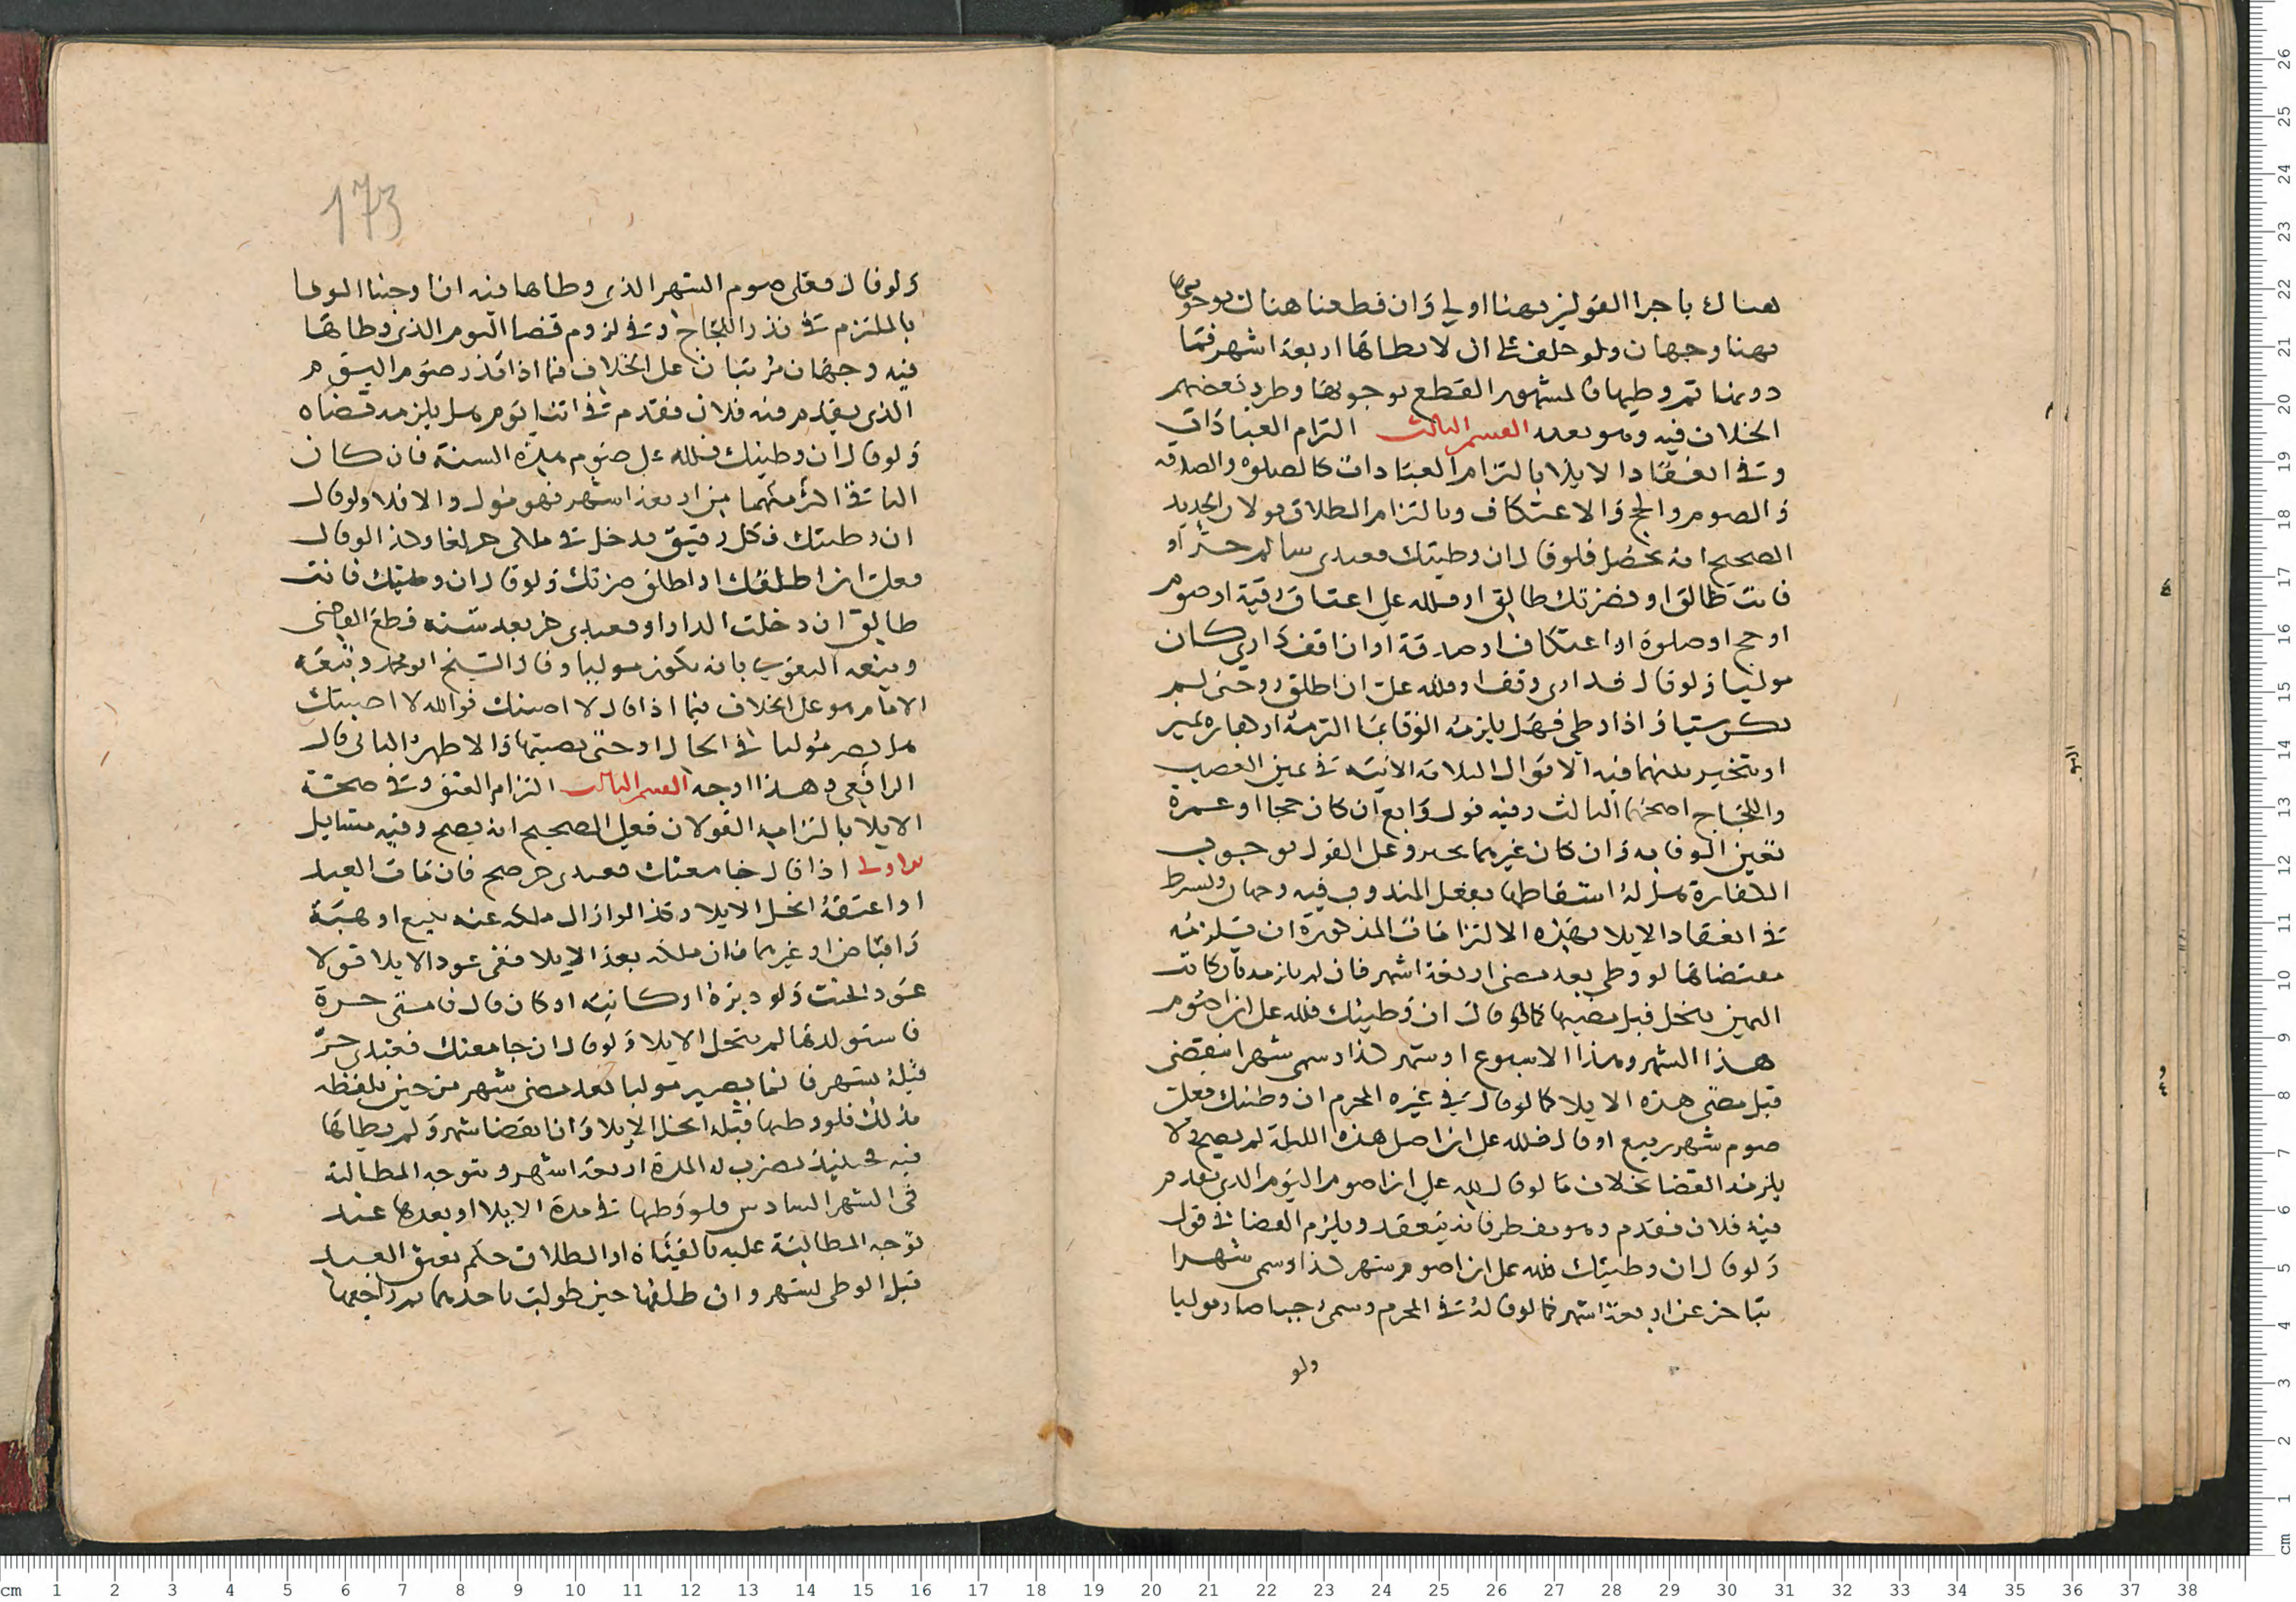 هناك باجرا القولين فهنا اولي وان قطعنا هناك بوجوبها
فهنا وجهان ولو حلف على ان لا يطاها اربعة اشهر فما
دونها ثم وطيها فالمشهور القطع بوجوبها وطرد بعضهم
الخلاف فيه وهو بعيد القسم الثالث التزام العبادات
وفي انعقاد الايلا بالتزام العبادات كالصلوة والصدقه
والصوم والحج والاعتكاف وبالتزام الطلاق قولان الجديد
الصحيح انه يحصل فلو قال ان وطيتك فعبدي سالم حر او
فانت طالق او فضرتك طالق او فلله علي اعتاق رقبة او صوم
او حج او صلوة او اعتكاف او صدقة او ان اقف داري كان
موليا ولو قال فداري وقف او فلله علي ان اطلق روحتي لم
يكن شيا واذا وطي فهل يلزمه الوفا بما التزمه او كفارة يمين
او يتخير بينهما فيه الاقوال الثلاثة الاتية في يمين الغضب
واللجاج اصحها الثالث وفيه قول رابع ان كان حجا او عمرة
تعين الوفا به وان كان غيرهما تخير وعلى القول بوجوب
الكفارة هل له اسقاطها بفعل المندوب فيه وجهان ويشرط
في انعقاد الايلا بهذه الالتزامات المذكورة ان يلزمه
مقتضاها لو وطي بعد مضي اربعة اشهر فان لم يلزمه بان كانت
اليمين تنحل قبل مضيها كما لو قال ان وطيتك فلله علي ان اصوم
هذا الشهر وهذا الاسبوع او شهر كذا وسمى شهرا ينقضي
قبل مضي هذه الايلا كما لو قال في غرة المحرم ان وطيتك فعلي
صوم شهر ربيع او قال فلله علي ان اصلي هذه الليلة لم يصح ولا
يلزمه القضا بخلاف ما لو قال لله علي ان اصوم اليوم الذي يقدم
فيه فلان فقدم وهو مفطر فانه ينعقد ويلزم القضا في قول
ولو قال ان وطيتك فلله علي ان اصوم شهر كذا وسمى شهرا
يتاخر عن اربعة اشهر كما لو قال له في المحرم وسمى رجبا صار موليا
ولو
173
ولو قال فعلي صوم الشهر الذي وطاها فيه ان اوجبنا الوفا
بالملتزم في نذر اللجاج وفي لزوم قضا اليوم الذي وطاها
فيه وجهان مرتبان على الخلاف فيما اذا نذر صوم اليوم
الذي يقدم فيه فلان فقدم في اثنا يوم هل يلزمه قضاه
ولو قال ان وطيتك فلله علي صوم هذه السنة فان كان
الباقي اكثر منهما من اربعة اشهر فهو مول والا فلا ولو قال
ان وطيتك فكل رقيق يدخل في ملكي حر لغا وكذا لو قال
فعلي ان اطلقك او اطلق ضرتك ولو قال ان وطيتك فانت
طالق ان دخلت الدار او فعبدي حر بعد سنه قطع القاضي
وتبعه البغوي بانه يكون موليا وقال الشيخ ابو محمد وتبعه
الامام هو على الخلاف فيما اذا قال لا اصبتك فوالله لا اصبتك
هل يصير موليا في الحال او حتى يصيبها والاظهر الثاني قال
الرافعي وهذا اوجه القسم الثالث التزام العتق وفي صحة
الايلا بالتزامه القولان فعلى الصحيح انه يصح وفيه مسايل
الاولى اذا قال جامعتك فعبدي حر صح فان مات العبد
او اعتقه انحل الايلا وكذا لو ازال ملكه عنه ببيع او هبة
واقباض او غيرهما فان ملكه بعد الايلا ففي عود الايلا قولا
عود الحنث ولو دبره او كاتبه او كان قال فامتي حرة
فاستولدها لم ينحل الايلا ولو قال ان جامعتك فعبدي حر
قبله بشهر فانما يصير موليا بعد مضي شهر من حين تلفظه
بذلك فلو وطيها قبله انحل الايلا وان انقضا شهر ولم يطاها
فيه فحينيذ تضرب له المدة اربعة اشهر وتتوجه المطالبة
في الشهر السادس فلو وطيها في مدة الايلا او بعدها عند
توجه المطالبة عليه بالفيئة او الطلاق حكم بعتق العبد
قبل الوطي بشهر وان طلقها حين طولب باحدهما ثم راجعها